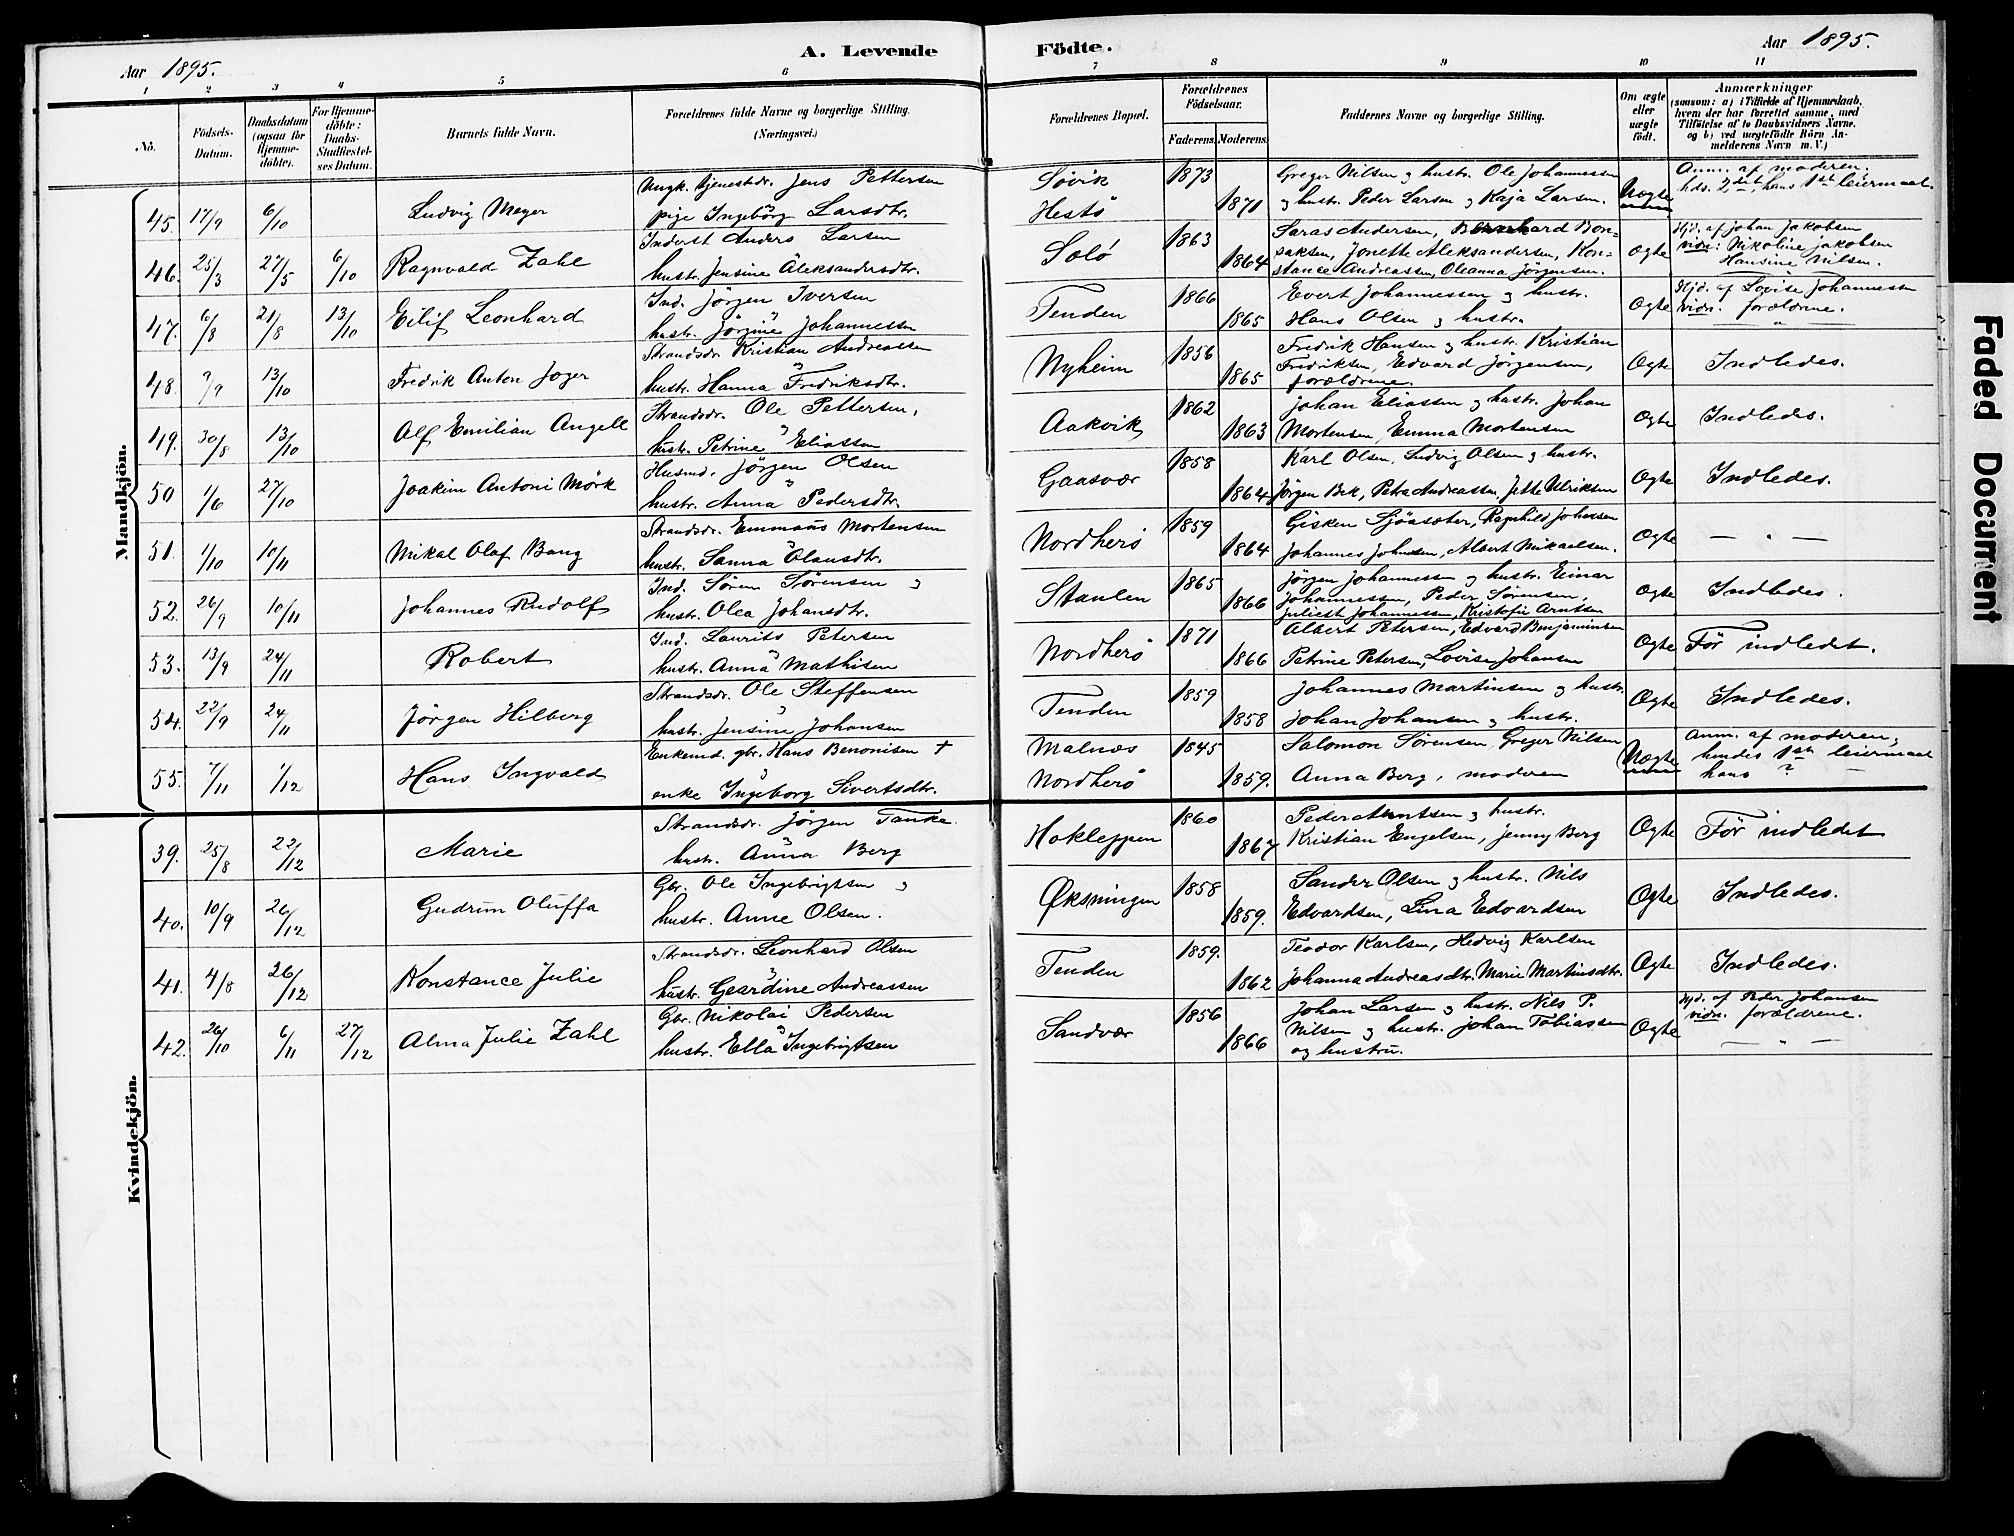 A. Levende Födte.
Aar 1895.
Aar 1895.
1 2 3 4 5 6 7 8 9 10 11
No.
Födsels-Datum.
Daabsdatum (ogsaa for Hjemme-döbte).
For Hjemme-döbte: Daabs-Stadfæstel-ses Datum.
Barnets fulde Navn.
Forældrenes fulde Navne og borgerlige Stilling. (Næringsvei.)
Forældrenes Bopæl.
Forældrenes Födselsaar.
Faderens. Moderens.
Faddernes Navne og borgerlige Stilling.
Om ægte eller uægte født.
Anmærkninger (saasom: a) i Tilfælde af Hjemmedaab, hvem der har forrettet samme, med Tilföielse af to Daabsvidners Navne, og b) ved uægtefödte Börn Anmelderens Navn m. V.)
Mandkjön.
45. 17/9 6/10 Ludvig Meyer
Ungk. tjenestedr. Jens Pettersen
pige Ingebörg Larsdtr.
Søvik
Hestø
1873
1871
Greger Nilsen og hustr. Ole Johannessen
og hustr. Peder Larsen og Kaja Larsen.
Uægte
Anm. af moderen;
hds. 2det, hans 1ste leiermaal.
46. 25/3 27/5 6/10 Ragnvald Zahl
Inderst Anders Larsen
hustr. Jensine Aleksandersdtr.
Solø
1863
1864
Saras Andersen, Bernhard Bon-
saksen, Jonette Aleksandersen, Kon-
stance Andreassen, Oleanna Jørgensen.
Ægte
Hjd. af Johan Jakobsen
vidn: Nikoline Jakobsen
Hansine Nilsen.
47. 6/8 21/8 13/10 Eilif Leonhard
Ind. Jörgen Iversen
hustr. Jörgine Johannessen
Tenden
1866
1865
Evert Johannessen og hustr.
Hans Olsen og hustr.
Ægte
Hjd. af Lovise Johannessen
vidn. forældrene.
48. 9/9 13/10 Fredrik Anton Joger
Strandsdr. Kristian Andreassen
hustr. Hanna Fredriksdtr.
Nyheim
1856
1865
Fredrik Hansen og hustr. Kristian
Fredriksen, Edvard Jörgensen,
forældrene.
Ægte
Indledes.
49. 30/8 13/10 Alf Emilian Angell
Strandsdr. Ole Pettersen,
hustr. Petrine Eliassen
Aakvik
1862
1863
Johan Eliassen og hustr. Johan
Mortensen, Emma Mortensen
Ægte
Indledes.
50 1/6 27/10 Joakim Antoni Mörk
Husmd. Jörgen Olsen
hustr. Anna Pedersdtr.
Gaasvær
1858
1864
Karl Olsen, Ludvig Olsen og hustr.
Jörgen Bek, Petra Andreassen, Jette Ulriksen
Ægte
Indledes.
51. 1/10 10/11 Mikal Olaf Bang
Strandsdr. Emmaus Mortensen
hustr. Sanna Olausdtr.
Nordherø
1859
1864
Gisken Sjöasæter, Ragnhild Johansen
Johannes Johansen, Albert Mikaelsen.
Ægte
— " —
52. 26/9 10/11 Johannes Rudolf
Ind. Sören Sörensen og
hustr. Olea Johansdtr.
Staulen
1865
1866
Jörgen Johannessen og hustr. Einar
Johannessen, Peder Sörensen,
Juliest Johannessen, Kristofie Arntsen
Ægte
Indledes.
53. 13/9 24/11 Robert
Ind. Laurits Petersen
hustr. Anna Mathisen
Nordherø
1871
1866
Albert Petersen, Edvard Benjaminsen
Petrine Petersen, Lovise Johansen
Ægte
Før indledet.
54. 22/9 24/11 Jörgen Hilberg
Strandsdr. Ole Steffensen
hustr. Jensine Johansen
Tenden
1859
1858
Johannes Martinsen og hustr.
Johan Johansen og hustr.
Ægte
Indledes.
55. 7/11 1/12 Hans Ingvald
Enkemd. gbr. Hans Benonisen +
enke Ingeborg Sivertsdtr.
Malnæs
Nordherø
1845
1859.
Salomon Sörensen, Greger Nilsen
Anna Berg, moderen
Uægte
Anm. af moderen;
hendes 1ste leiermaal
hans ? —
Kvindekjön.
39. 25/8 22/12 Marie
Strandsdr. Jörgen Tanke
hustr. Anna Berg
Hokleppen
1860
1867
Peder Arntsen og hustr.
Kristian Engelsen, Jenny Berg
Ægte
Før indledet
40. 10/9 26/12 Gudrun Oluffa
Gbr. Ole Ingebrigtsen og
hustr. Anne Olsen.
Øksningen
1858
1859.
Sander Olsen og hustr. Nils
Edvardsen, Lina Edvardsen
Ægte
Indledes.
41. 4/8 26/12 Konstance Julie
Strandsdr. Leonhard Olsen
hustr. Geardine Andreassen
Tenden
1859.
1862
Teodor Karlsen, Hedvig Karlsen
Johanna Andreasdtr. Marie Martinsdtr.
Ægte
Indledes.
42. 26/10 6/11 27/12 Alma Julie Zahl
Gbr. Nikolai Pedersen
hustr. Ella Ingebrigtsen
Sandvær
1856
1866
Johan Larsen og hustr. Nils P.
Nilsen og hustr. Johan Tobiassen
og hustru.
Ægte
Hjd. af Peder Johansen
vidn. forældrene.
— " —
Faded Document